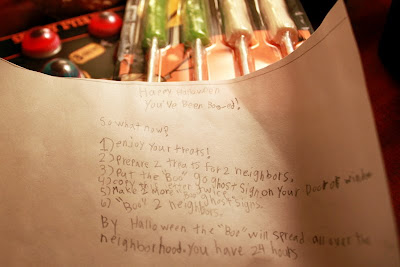 Happy Halloween
You've Been Boo-ed!
So what now?
1) enjoy your treats!
2) prepare 2 treats for 2 neighbors.
3) Put the "Boo" go ghost sign on your Door or window
4) copy letter twice
5) Make 2 more "Boo" ghost signs
6) "Boo" 2 neighbors.
By Halloween the "Boo" will spread all over the
neighborhood. you have 24 hours